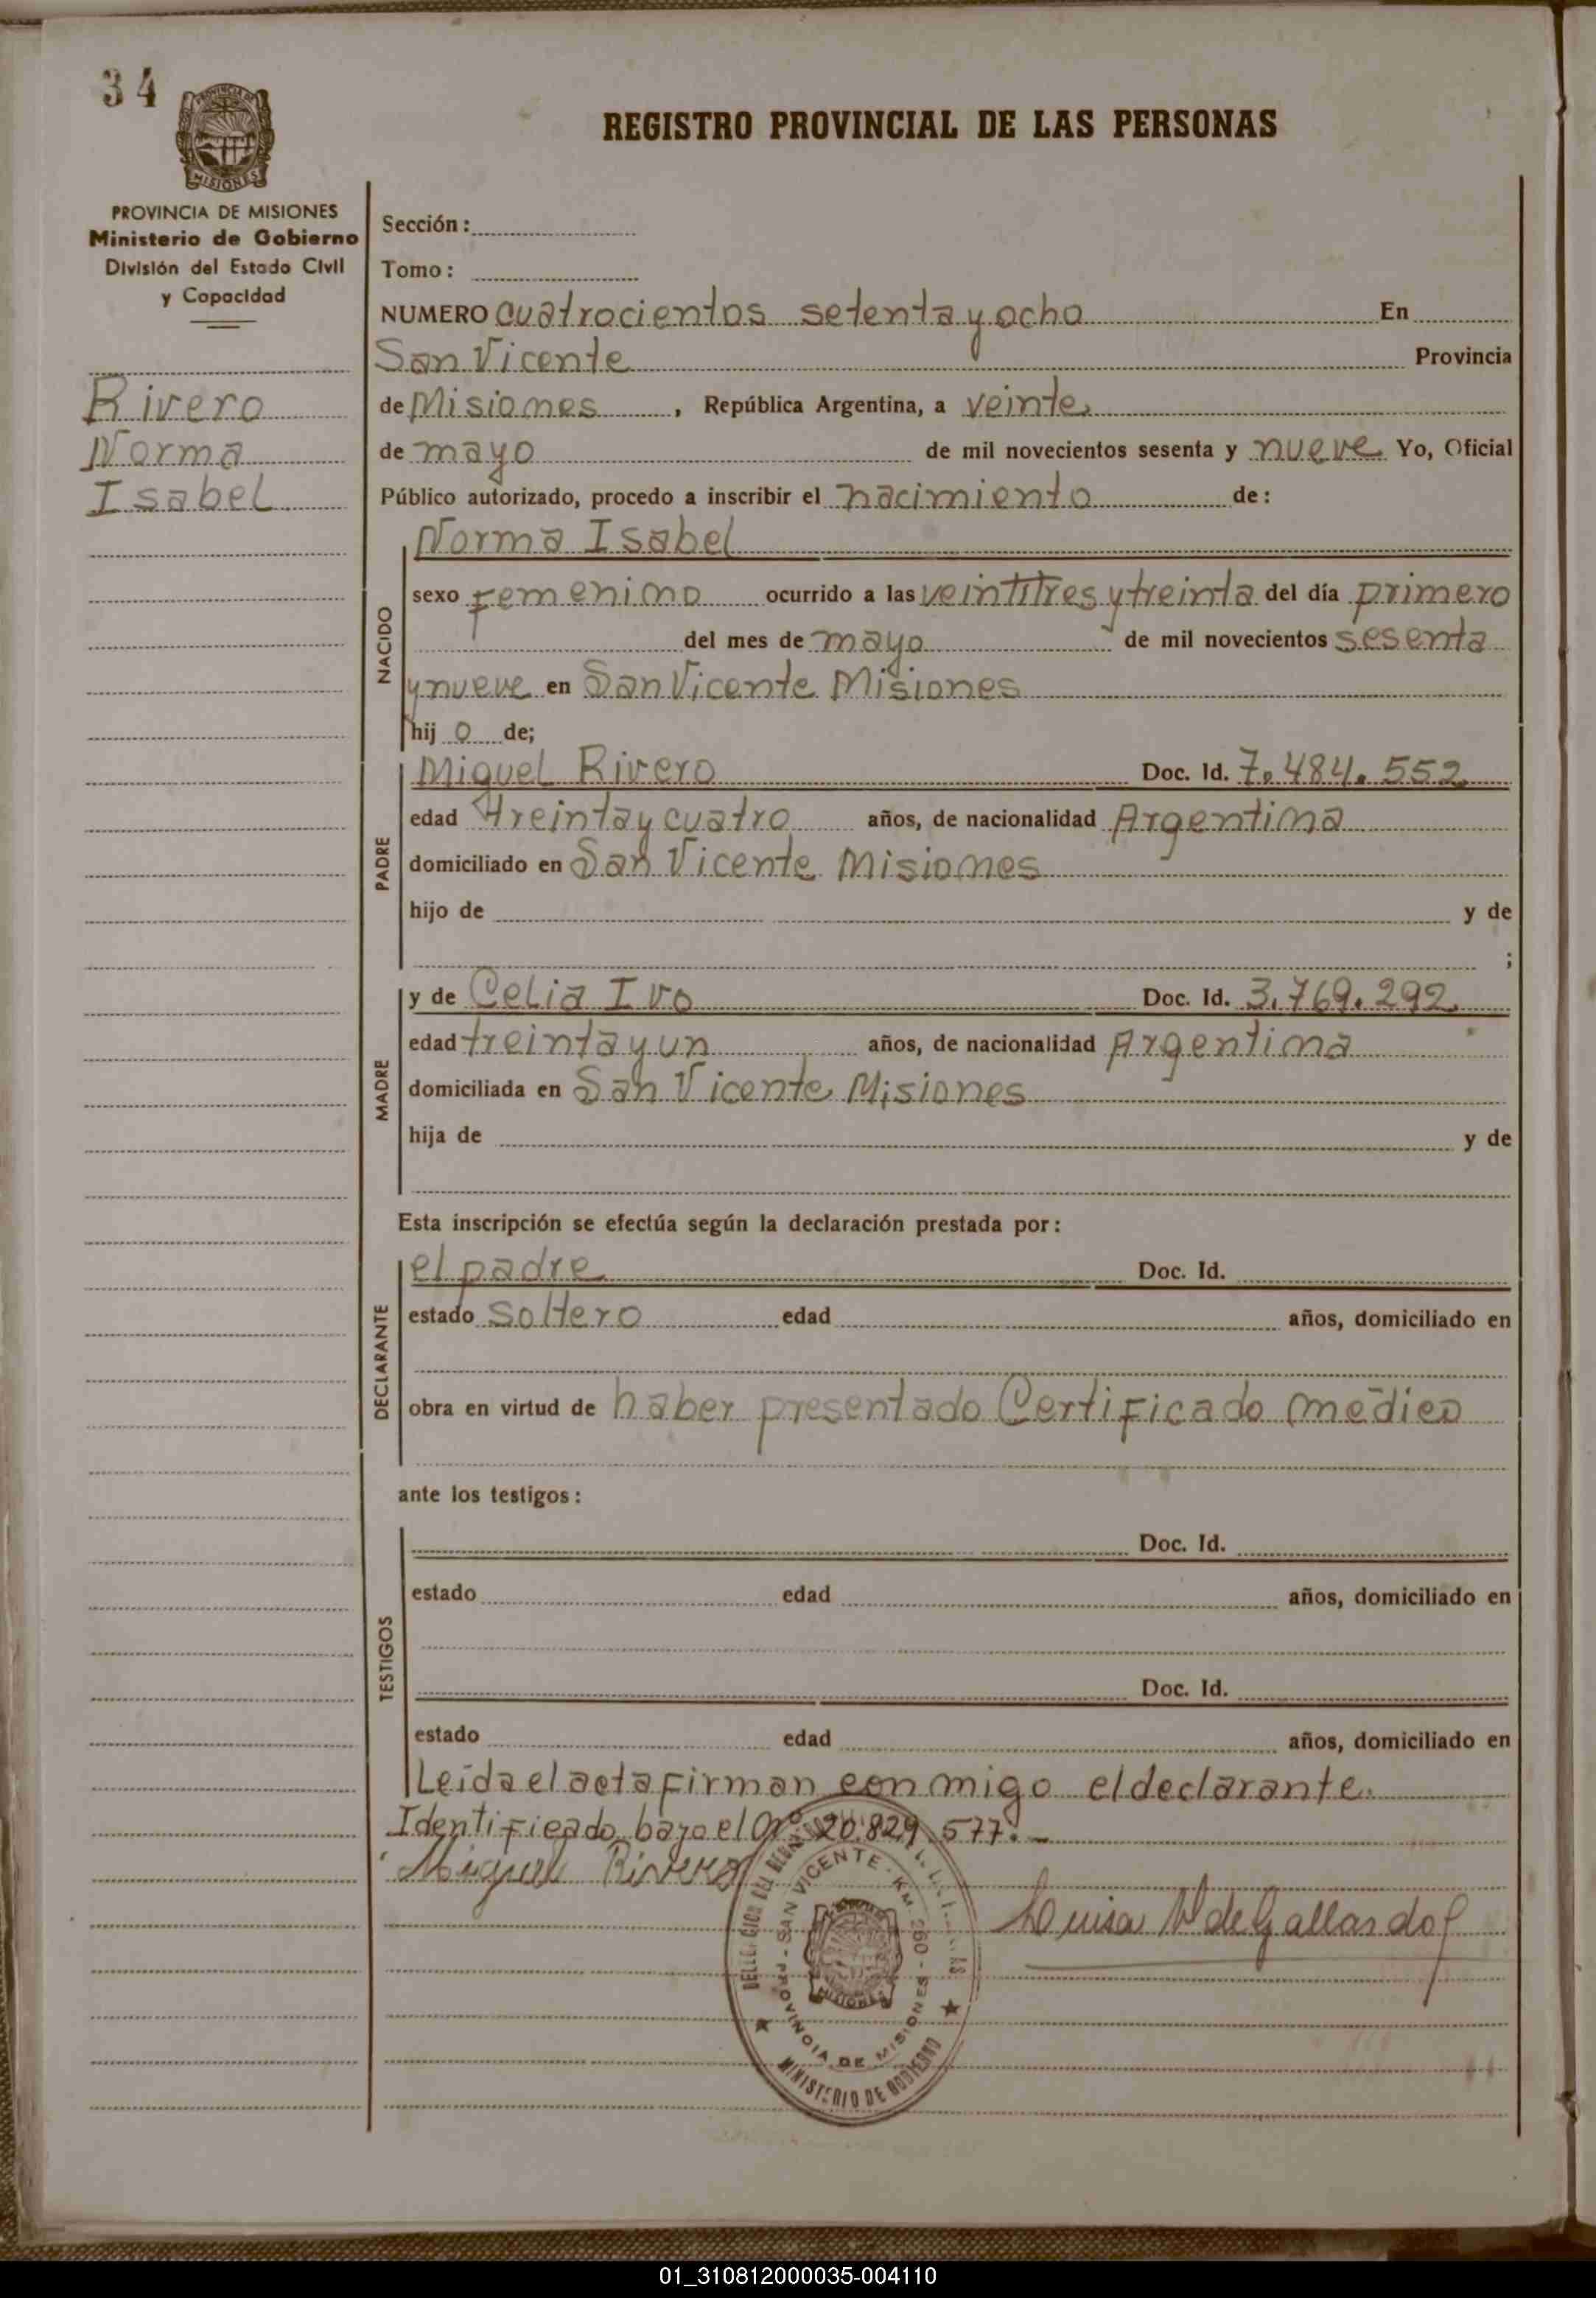 34
PROVINCIA DE MISIONES
Ministerio de Gobierno
División del Estado Civil
y Capacidad
Rivero
Norma
Isabel
REGISTRO PROVINCIAL DE LAS PERSONAS
Sección:
Tomo:
NUMERO cuatrocientos setenta y ocho En
San Vicente Provincia
de Misiones, República Argentina, a veinte
de mayo de mil novecientos sesenta y nueve Yo, Oficial
Público autorizado, procedo a inscribir el nacimiento de:
NACIDO
Norma Isabel
sexo femenino ocurrido a las veintitres y treinta del día primero
del mes de mayo de mil novecientos sesenta
y nueve en San Vicente Misiones
hij o de;
PADRE
Miguel Rivero Doc. Id. 7.484.552
edad treinta y cuatro años, de nacionalidad Argentina
domiciliado en San Vicente Misiones
hijo de y de
;
MADRE
y de Celia Ivo Doc. Id. 3.769.292
edad treinta y un años, de nacionalidad Argentina
domiciliada en San Vicente Misiones
hija de y de
Esta inscripción se efectúa según la declaración prestada por:
DECLARANTE
el padre Doc. Id.
estado soltero edad años, domiciliado en
obra en virtud de haber presentado Certificado médico
ante los testigos:
TESTIGOS
Doc. Id.
estado edad años, domiciliado en
Doc. Id.
estado edad años, domiciliado en
Leida el acta firman conmigo el declarante.
Identificado bajo el Nº 20.829.577.-
Miguel Rivero
Luisa de Gallardo
SAN VICENTE - KM. 260 -
PROVINCIA DE MISIONES
MINISTERIO DE GOBIERNO
MISIONES
01_310812000035-004110